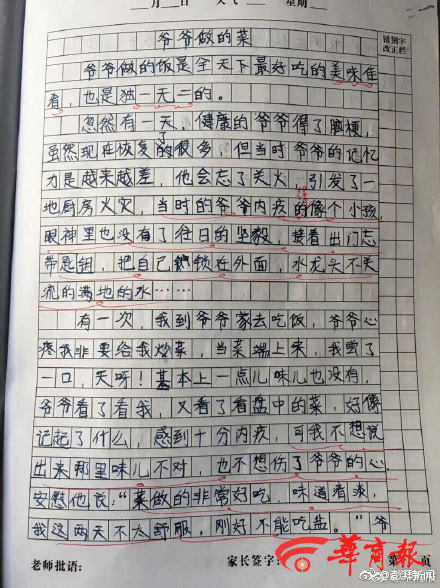 月 日 天气 星期
错别字改正栏
爷爷做的菜
爷爷做的饭是全天下最好吃的美味佳
肴,也是独一无二的。
忽然有一天,健康的爷爷得了脑梗,
虽然现在恢复了很多,但当时爷爷的记忆
力是越来越差,他会忘了关火,引发了一
地厨房火灾,当时的爷爷内疚的像个小孩,
眼神里也没有了往日的坚毅,接着出门忘
带匙钥,把自己锁在外面,水龙头不关
流的满地的水……
有一次,我到爷爷家去吃饭,爷爷心
疼我非要给我炒菜,当菜端上来,我尝了
一口,天呀!基本上一点儿味儿也没有,
爷爷看了看我,又看了看盘中的菜,好像
记起了什么,感到十分内疚,可我不想说
出来那里味儿不对,也不想伤了爷爷的心,
安慰他说:“菜做的非常好吃,味道看淡,
我这两天不太舒服,刚好不能吃盐。”爷
老师批语: 家长签字: 第 页
华商报
@澎湃新闻